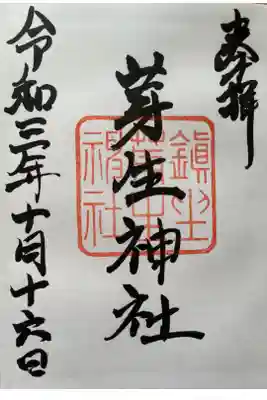 奉拝
芽生神社
鎮土
芽生
神社
令和三年十月十六日